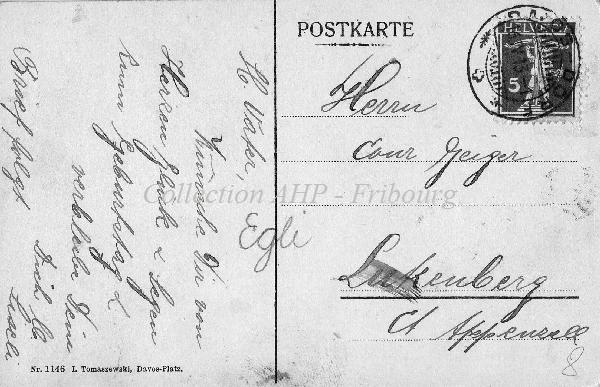 POSTKARTE
HELVETIA
5
DAVOS DORF
Lb. Vater,
Wünsche Dir von
Herzen Glück & Segen
zum Geburtstag &
verbleibe Deine
Dich lb.
Liseli
Brief folgt
Egli
Herrn
Conr Geiger
Lutzenberg
Ct Appenzell
8
Collection AHP - Fribourg
Nr. 1146 L. Tomaszewski, Davos-Platz.